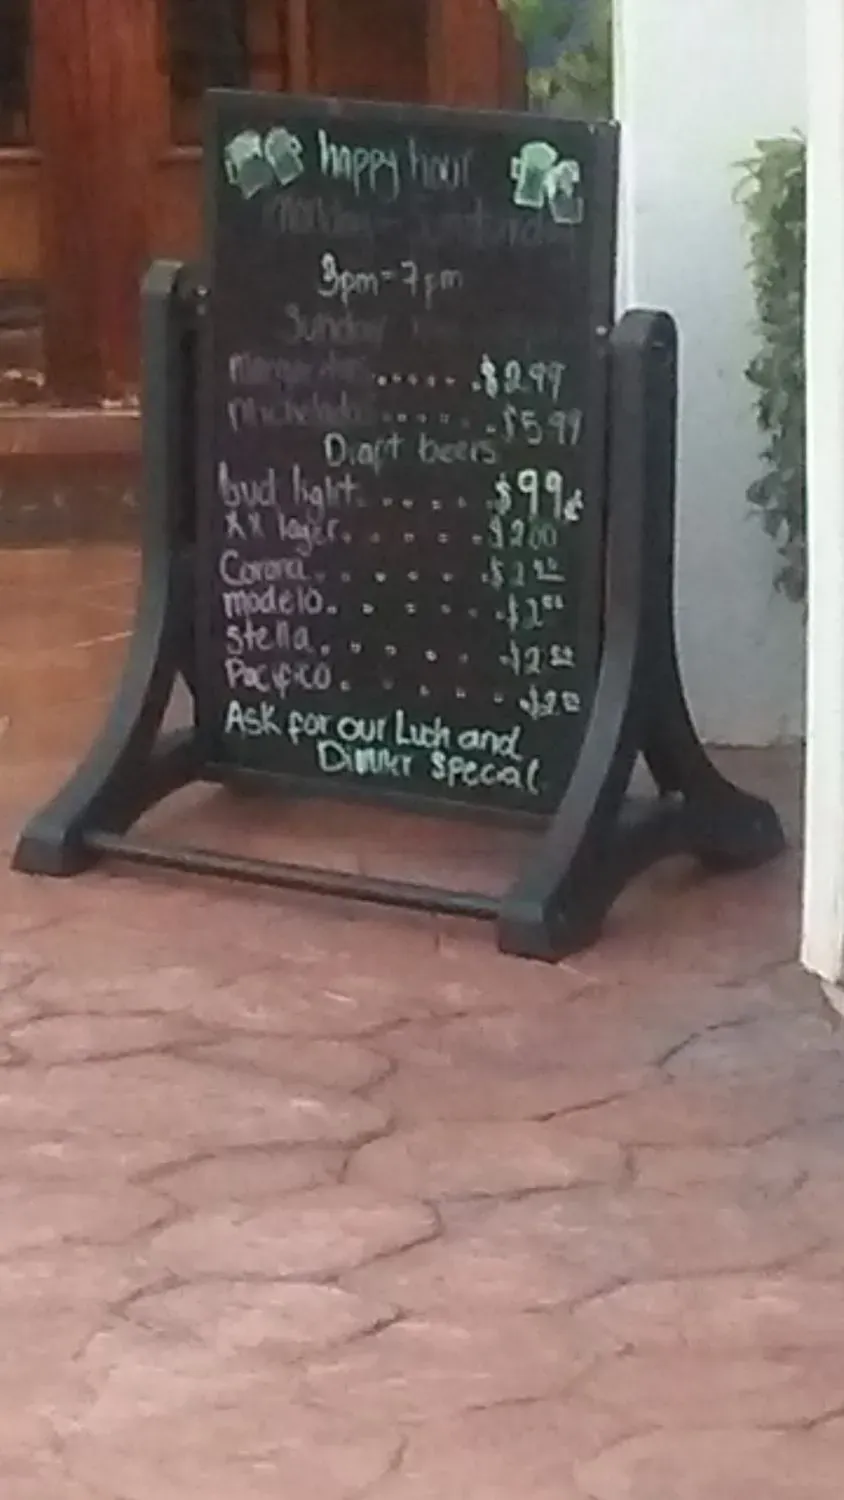 happy hour
Monday - Saturday
3pm - 7pm
Sunday
Margaritas......$2.99
Micheladas.....$5.99
Draft beers
bud light.....$99¢
XX lager.....$2.00
Corona.....$2.50
modelo.....$2.50
Stella.....$2.50
Pacifico.....$2.50
Ask for our Luch and
Dinner special